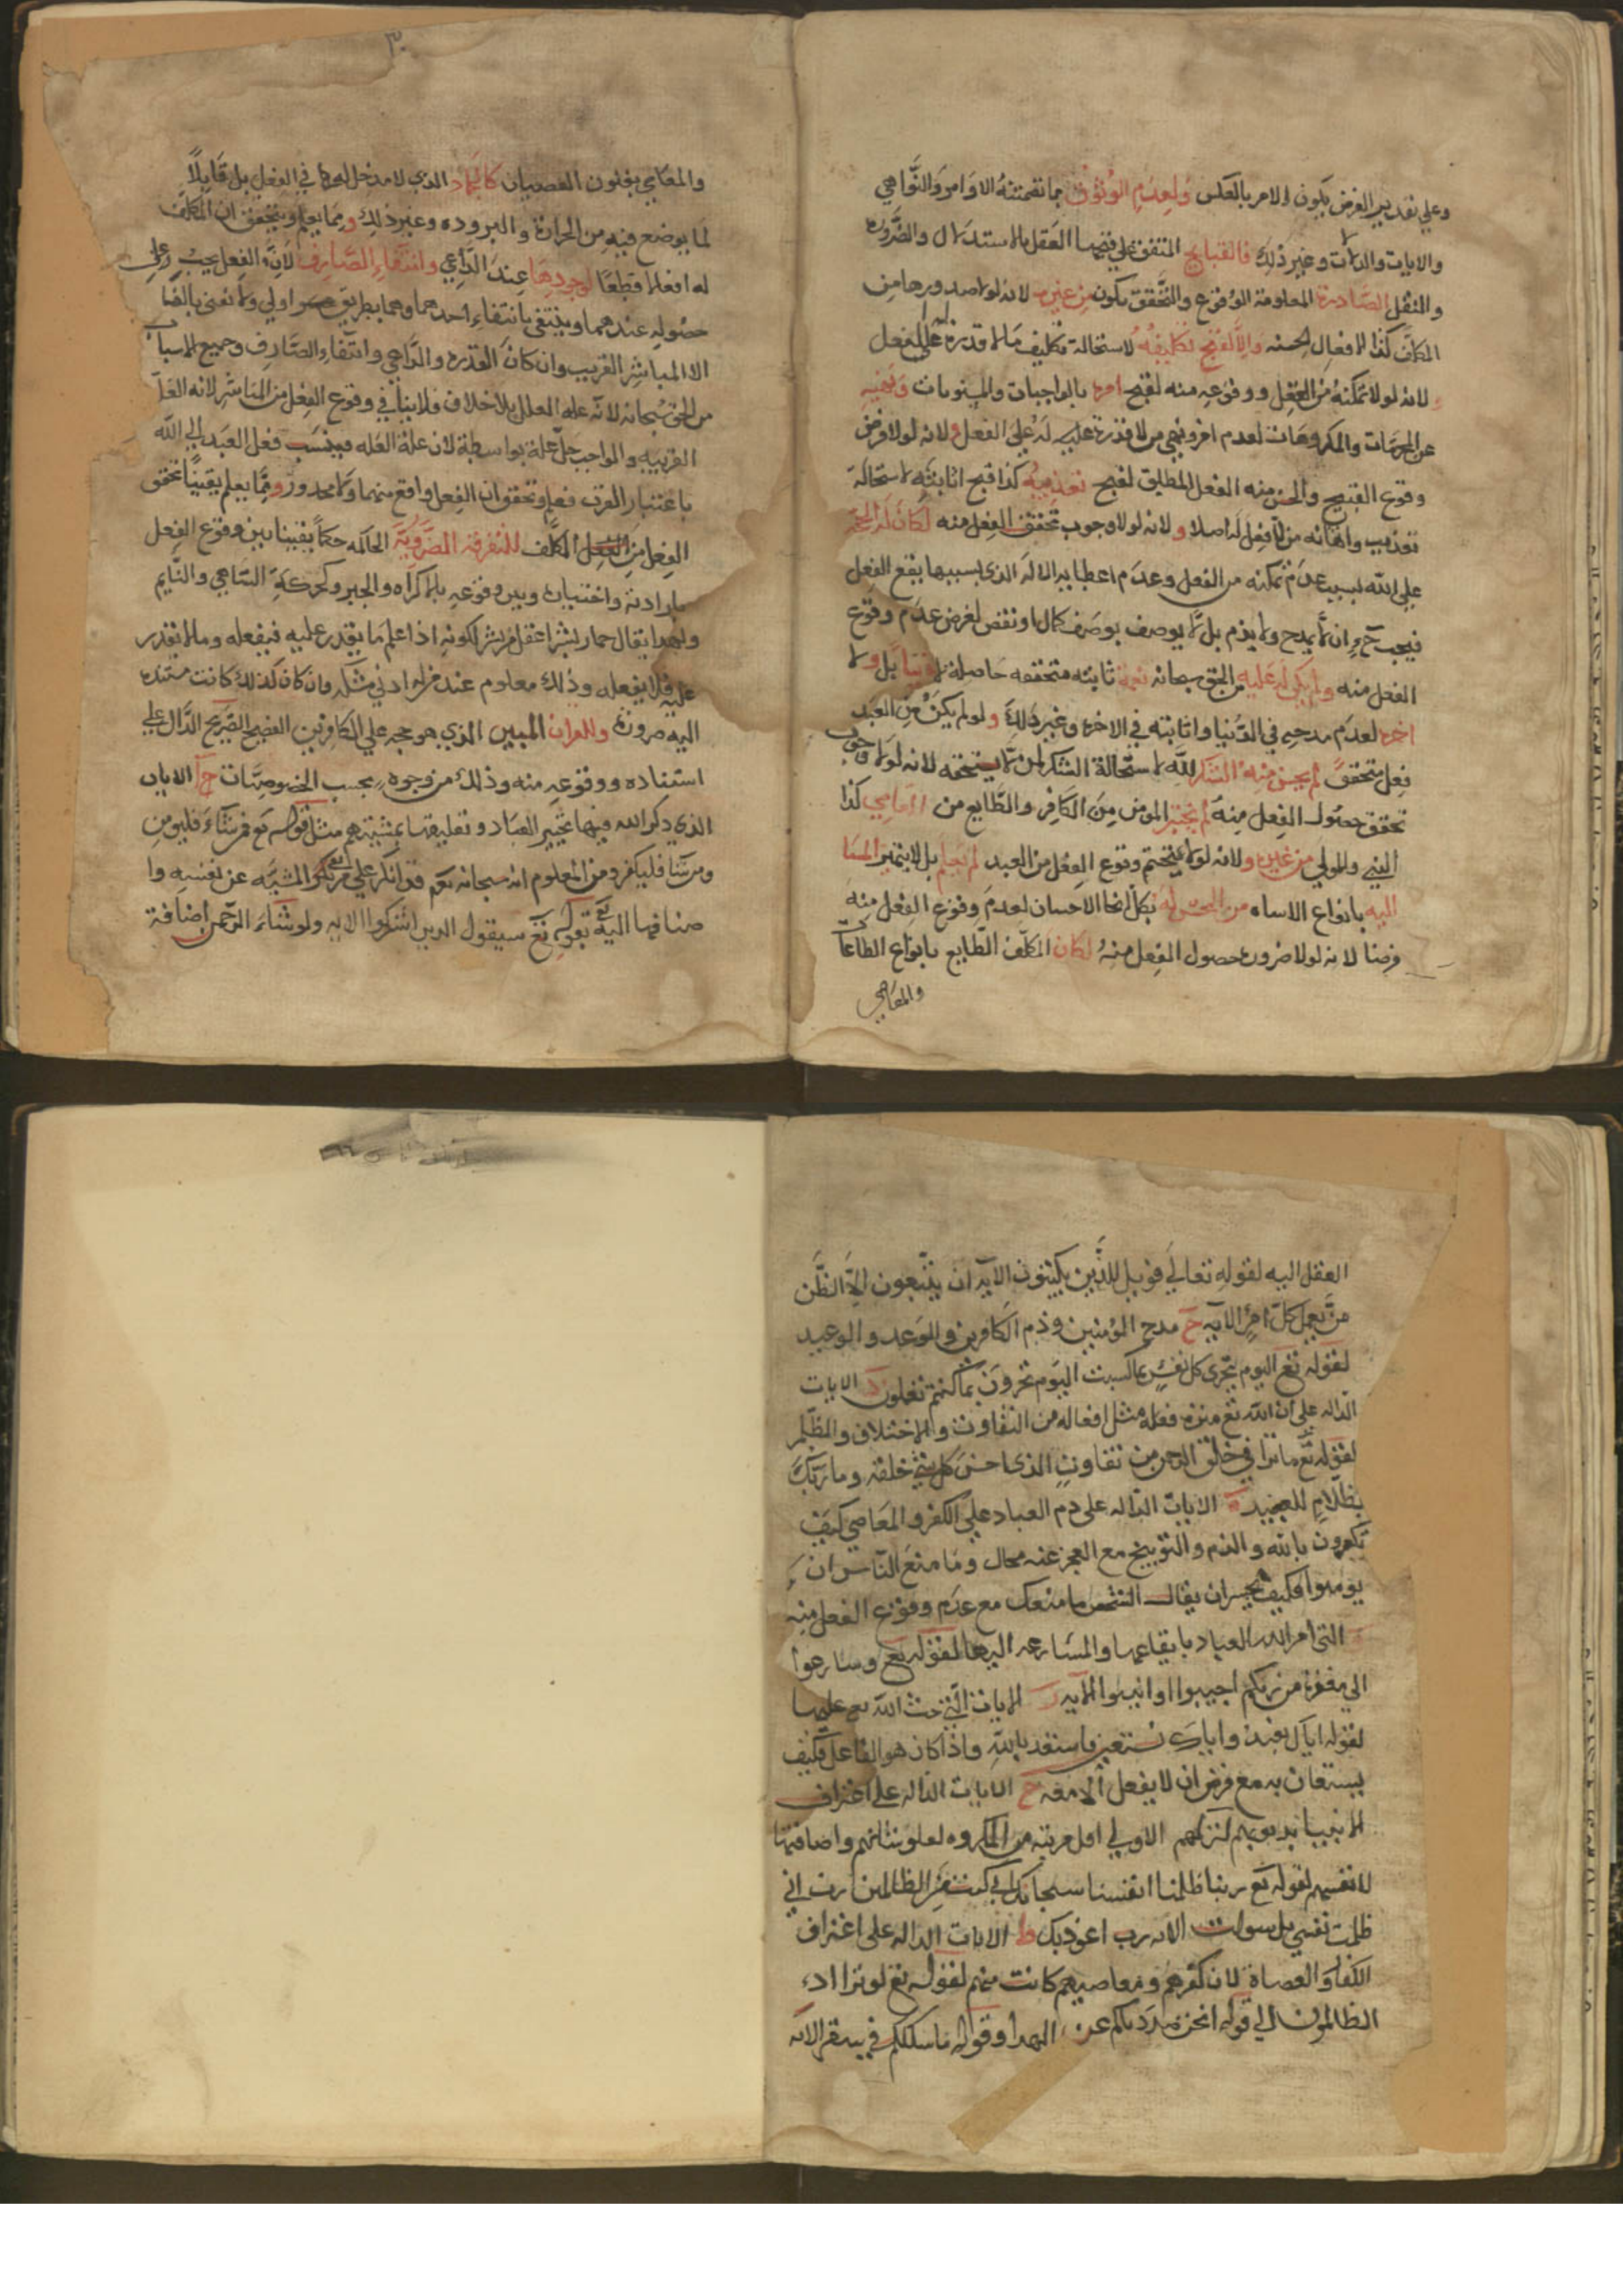 وعلي تقدير الغرض يكون الامر بالعكس ولعدم الوثوق بما تضمنته الاوامر والنواهي
والايات والدلالات وغير ذلك فالقبايح المتفق علي قبحها العقل بالاستدلال والضرورة
والنقل الصادرة المعلومة الوقوع والتحقق يكون من غيره لانه لولا صدورها من
المكلف كذا الافعال الحسنه والا لقبح تكليفه لاستحالة تكليف مالا قدرة له علي الفعل
لانه لولا تمكنه من الفعل ووقوعه منه لقبح امره بالواجبات والمندوبات ونهيه
عن المحرمات والمكروهات لعدم امر ونهي من لا قدرة عليه له علي الفعل ولانه لولا فرض
وقوع القبيح والحسن منه الفعل المطلق لقبح تعذيبه كذا قبح اثابته لاستحالة
تعذيب واهانه من لا فعل له اصلا ولانه لولا وجوب تحقق الفعل منه لكان له الحجة
علي الله بسبب عدم تمكنه من الفعل وعدم اعطايه الاله الذي بسببها يقع الفعل
فيجب ح ان لا يمدح ولا يذم بل لا يوصف بوصف كمال او نقص لفرض عدم وقوع
الفعل منه ولم يكن له عليه من الحق سبحانه نعمة ثابته متحققه حاصلة
اخره لعدم مدحه في الدنيا واثابته في الاخرة وغير ذلك ولو لم يكن من العبد
فعل متحقق لم يحسن منه الشكر لله لاستحالة الشكر لمن لا يستحقه لانه لولا وجوب
تحقق حصول الفعل منه لم يتميز المومن من الكافر والطايع من العاصي كذا
النبي والولي من غيره ولانه لولا يتحتم وقوع الفعل من العبد لم يعلم بل لا يتميز المسا
اليه بانواع الاساه من المحسن له بكل انحا الاحسان لعدم وقوع الفعل منه
فرضا لانه لولا ضرورة حصول الفعل منه لكان المكلف الطايع بانواع الطاعات
والمعاصي
٣٠
والمعاصي بفنون العصيان كالجماد الذي لا مدخل له في الفعل بل قابلا
لما يوضع فيه من الحرارة والبروده وغير ذلك ومما يعلم ويتحقق ان المكلف
له افعالا قطعا لوجودها عند الداعي وانتفاء الصارف لان الفعل يجب وعلي
حصوله عندهما وينتفي بانتفاء احدهما وهما بطريق اولي ولا نعني بالفا
الا المباشر القريب وان كان القدرة والداعي وانتفاء الصارف وجميع الاسباب
من الحق سبحانه لانه عله العلل بلا خلاف فلا ينافي وقوع الفعل من المباشر لانه العلة
القريبه والواجب جل علة بواسطة لان علة العله فينسب فعل العبد الي الله
باعتبار القرب فعلم وتحقق ان الفعل واقع منهما ولا محدور ومما يعلم يقينا تحقق
الفعل من المكلف للتفرقة الضرورية الحاكمه حكما يقينا بين وقوع الفعل
بارادته واختياره وبين وقوعه بالاكراه والجبر وكحركة الساهي والنايم
ولهذا يقال حمار بشر اعقل من بشر لكونه اذا علم ما يقدر عليه فيفعله ومالا يقدر
عليه فلا يفعله وذلك معلوم عند من له ادني مسكه وان كان كذلك كانت مستنده
اليه ضرورة وللقران المبين الذي هو حجه علي الكافرين الفصيح الصريح الدال علي
استناده ووقوعه منه وذلك من وجوه بحسب الخصوصيات الايات
الذي ذكر الله فيها تخيير العباد وتعليقها بمشيتهم مثل قوله تع فمن شاء فليومن
ومن شا فليكفر ومن المعلوم انه سبحانه تع قد انكر علي من المشيه عن نفسه وا
ضافها اليه تع بقوله تع سيقول الذين اشركوا الايه ولو شاء الرحمن اضافة
العقل اليه لقوله تعالي فويل للذين يكتبون الايه ان يتبعون الا الظن
من يعمل كل امر الايه ج مدح المومنين وذم الكافرين والوعد والوعيد
لقوله تع اليوم تجزى كل نفس بما كسبت اليوم تجزون بما كنتم تعملون د الايات
الداله علي ان الله تع منزه فعله مثل افعاله من التفاوت والاختلاف والظلم
لقوله تع ما ترا في خلق الرحمن من تفاوت الذي احسن كل شي خلقه وما ربك
بظلام للعبيد ه الايات الداله على ذم العباد علي الكفر والمعاصي كيف
تكفرون بالله والذم والتوبيخ مع العجز عنه محال وما منع الناس ان
يومنوا فكيف يحسن ان يقال الشخص ما منعك مع عدم وقوع الفعل منه
التي امر الله العباد بايقاعها والمسارعه اليها لقوله تع وسارعوا
الي مغفرة من ربكم اجيبوا وانيبوا الايه ز الايات التي حث الله تع عليها
لقوله اياك نعبد واياك نستعين فاستعذ بالله واذا كان هو الفاعل فكيف
يستعان به مع فرض ان لا يفعل الامعه ح الايات الداله علي اعتراف
الانبيا بذنوبهم لتركهم الاولي اقل مرتبه من المكروه لعلو شانهم واضافتها
لانفسهم لقوله تع ربنا ظلمنا انفسنا سبحانك اني كنت من الظالمين رب اني
ظلمت نفسي بل سولت الايه رب اعوذ بك ط الايات الداله على اعتراف
الكفار والعصاة لان كفرهم ومعاصيهم كانت منهم لقوله تع لو ترا اذ
الظالمون الي قوله انحن صددناكم عن الهدا وقوله ما سلككم في سقر الايه